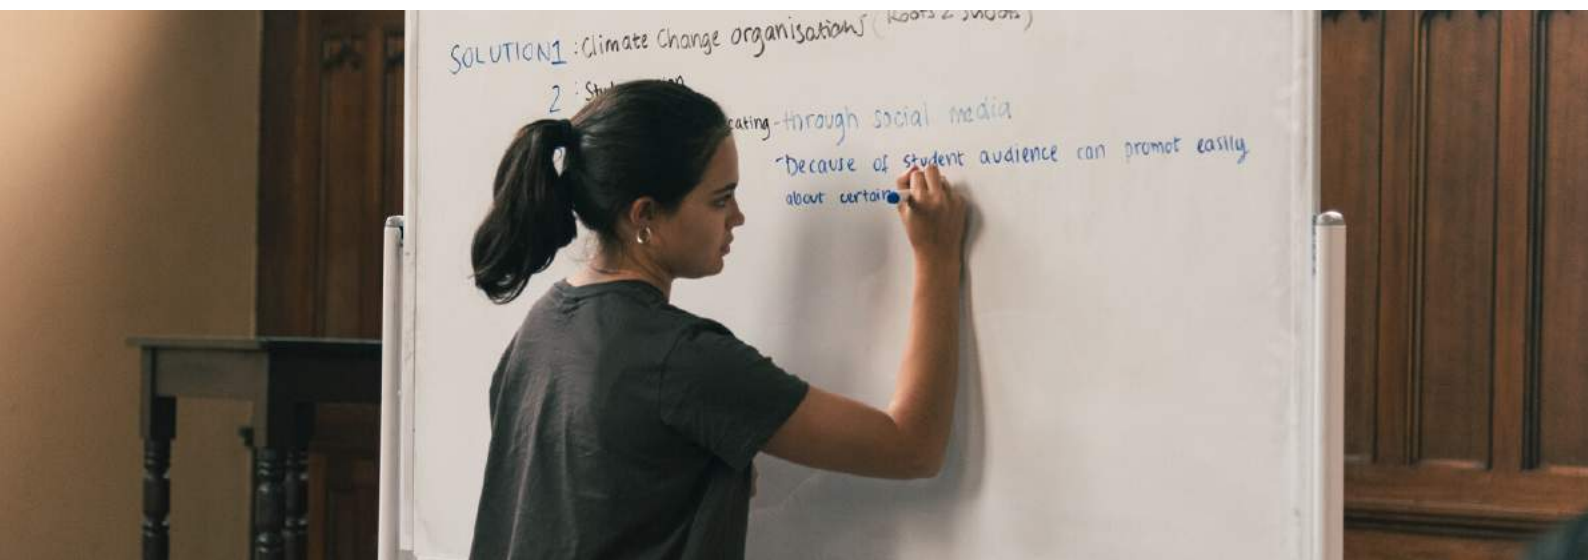 SOLUTION1 : Climate Change organisations (Roots & Shoots)
2 :
cating - through social media
- Because of student audience can promot easily
about certain